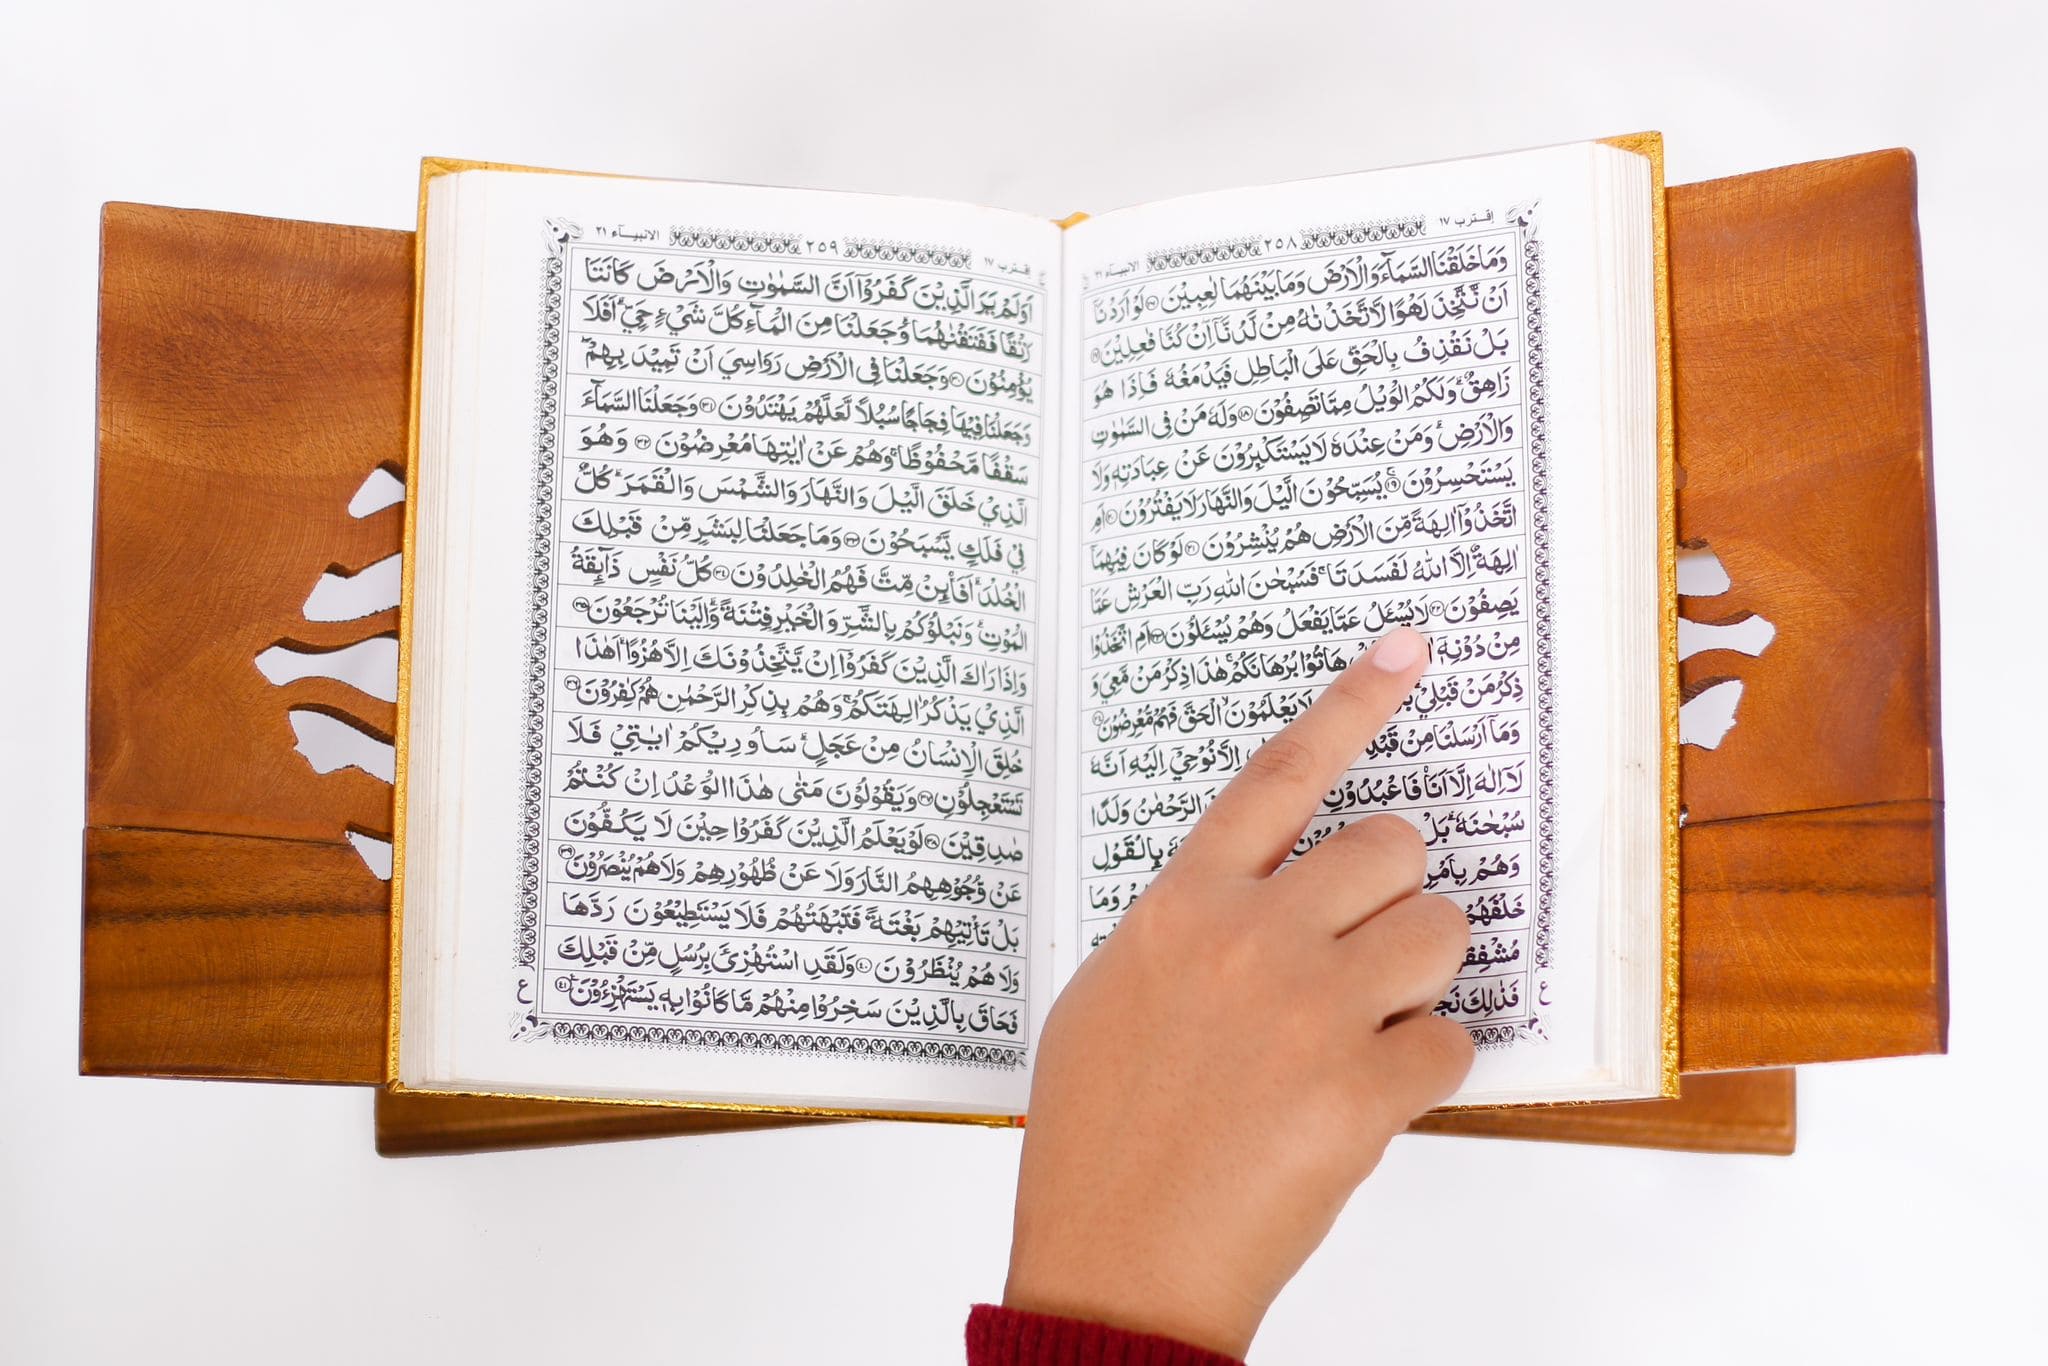 إقترب ١٧ ٢٥٨ الانبيآء ٢١
وَمَا خَلَقْنَا السَّمَآءَ وَالْاَرْضَ وَمَا بَيْنَهُمَا لٰعِبِيْنَ ۝١٦ لَوْ اَرَدْنَآ
اَنْ نَّتَّخِذَ لَهْوًا لَّاتَّخَذْنٰهُ مِنْ لَّدُنَّآ اِنْ كُنَّا فٰعِلِيْنَ ۝١٧
بَلْ نَقْذِفُ بِالْحَقِّ عَلَى الْبَاطِلِ فَيَدْمَغُهٗ فَاِذَا هُوَ
زَاهِقٌ ۗ وَلَكُمُ الْوَيْلُ مِمَّا تَصِفُوْنَ ۝١٨ وَلَهٗ مَنْ فِى السَّمٰوٰتِ
وَالْاَرْضِ ۗ وَمَنْ عِنْدَهٗ لَا يَسْتَكْبِرُوْنَ عَنْ عِبَادَتِهٖ وَلَا
يَسْتَحْسِرُوْنَ ۝١٩ يُسَبِّحُوْنَ الَّيْلَ وَالنَّهَارَ لَا يَفْتُرُوْنَ ۝٢٠ اَمِ
اتَّخَذُوْٓا اٰلِهَةً مِّنَ الْاَرْضِ هُمْ يُنْشِرُوْنَ ۝٢١ لَوْ كَانَ فِيْهِمَآ
اٰلِهَةٌ اِلَّا اللّٰهُ لَفَسَدَتَا ۚ فَسُبْحٰنَ اللّٰهِ رَبِّ الْعَرْشِ عَمَّا
يَصِفُوْنَ ۝٢٢ لَا يُسْئَلُ عَمَّا يَفْعَلُ وَهُمْ يُسْئَلُوْنَ ۝٢٣ اَمِ اتَّخَذُوْا
مِنْ دُوْنِهٖٓ هَاتُوْا بُرْهَانَكُمْ ۚ هٰذَا ذِكْرُ مَنْ مَّعِيَ وَ
ذِكْرُ مَنْ قَبْلِيْ ۗ لَا يَعْلَمُوْنَ ۙ الْحَقَّ فَهُمْ مُّعْرِضُوْنَ ۝٢٤
وَمَآ اَرْسَلْنَا مِنْ قَبْلِكَ اِلَّا نُوْحِيْٓ اِلَيْهِ اَنَّهٗ
لَآ اِلٰهَ اِلَّآ اَنَا۠ فَاعْبُدُوْنِ الرَّحْمٰنُ وَلَدًا
سُبْحٰنَهٗ ۗ بَلْ بِالْقَوْلِ
وَهُمْ بِاَمْرِ وَمَا
خَلْفَهُمْ
مُشْفِقُ
فَذٰلِكَ نَجْ
ع
الانبيآء ٢١ ٢٥٩ إقترب ١٧
اَوَلَمْ يَرَ الَّذِيْنَ كَفَرُوْٓا اَنَّ السَّمٰوٰتِ وَالْاَرْضَ كَانَتَا
رَتْقًا فَفَتَقْنٰهُمَا ۗ وَجَعَلْنَا مِنَ الْمَآءِ كُلَّ شَيْءٍ حَيٍّ ۗ اَفَلَا
يُؤْمِنُوْنَ ۝٣٠ وَجَعَلْنَا فِى الْاَرْضِ رَوَاسِيَ اَنْ تَمِيْدَ بِهِمْ ۖ
وَجَعَلْنَا فِيْهَا فِجَاجًا سُبُلًا لَّعَلَّهُمْ يَهْتَدُوْنَ ۝٣١ وَجَعَلْنَا السَّمَآءَ
سَقْفًا مَّحْفُوْظًا ۚ وَهُمْ عَنْ اٰيٰتِهَا مُعْرِضُوْنَ ۝٣٢ وَهُوَ
الَّذِيْ خَلَقَ الَّيْلَ وَالنَّهَارَ وَالشَّمْسَ وَالْقَمَرَ ۗ كُلٌّ
فِيْ فَلَكٍ يَّسْبَحُوْنَ ۝٣٣ وَمَا جَعَلْنَا لِبَشَرٍ مِّنْ قَبْلِكَ
الْخُلْدَ ۗ اَفَا۟ئِنْ مِّتَّ فَهُمُ الْخٰلِدُوْنَ ۝٣٤ كُلُّ نَفْسٍ ذَآئِقَةُ
الْمَوْتِ ۗ وَنَبْلُوْكُمْ بِالشَّرِّ وَالْخَيْرِ فِتْنَةً ۗ وَاِلَيْنَا تُرْجَعُوْنَ ۝٣٥
وَاِذَا رَاٰكَ الَّذِيْنَ كَفَرُوْٓا اِنْ يَّتَّخِذُوْنَكَ اِلَّا هُزُوًا ۗ اَهٰذَا
الَّذِيْ يَذْكُرُ اٰلِهَتَكُمْ ۚ وَهُمْ بِذِكْرِ الرَّحْمٰنِ هُمْ كٰفِرُوْنَ ۝٣٦
خُلِقَ الْاِنْسَانُ مِنْ عَجَلٍ ۗ سَاُورِيْكُمْ اٰيٰتِيْ فَلَا
تَسْتَعْجِلُوْنِ ۝٣٧ وَيَقُوْلُوْنَ مَتٰى هٰذَا الْوَعْدُ اِنْ كُنْتُمْ
صٰدِقِيْنَ ۝٣٨ لَوْ يَعْلَمُ الَّذِيْنَ كَفَرُوْا حِيْنَ لَا يَكُفُّوْنَ
عَنْ وُّجُوْهِهِمُ النَّارَ وَلَا عَنْ ظُهُوْرِهِمْ وَلَا هُمْ يُنْصَرُوْنَ ۝٣٩
بَلْ تَأْتِيْهِمْ بَغْتَةً فَتَبْهَتُهُمْ فَلَا يَسْتَطِيْعُوْنَ رَدَّهَا
وَلَا هُمْ يُنْظَرُوْنَ ۝٤٠ وَلَقَدِ اسْتُهْزِئَ بِرُسُلٍ مِّنْ قَبْلِكَ
فَحَاقَ بِالَّذِيْنَ سَخِرُوْا مِنْهُمْ مَّا كَانُوْا بِهٖ يَسْتَهْزِءُوْنَ ۝٤١
ع